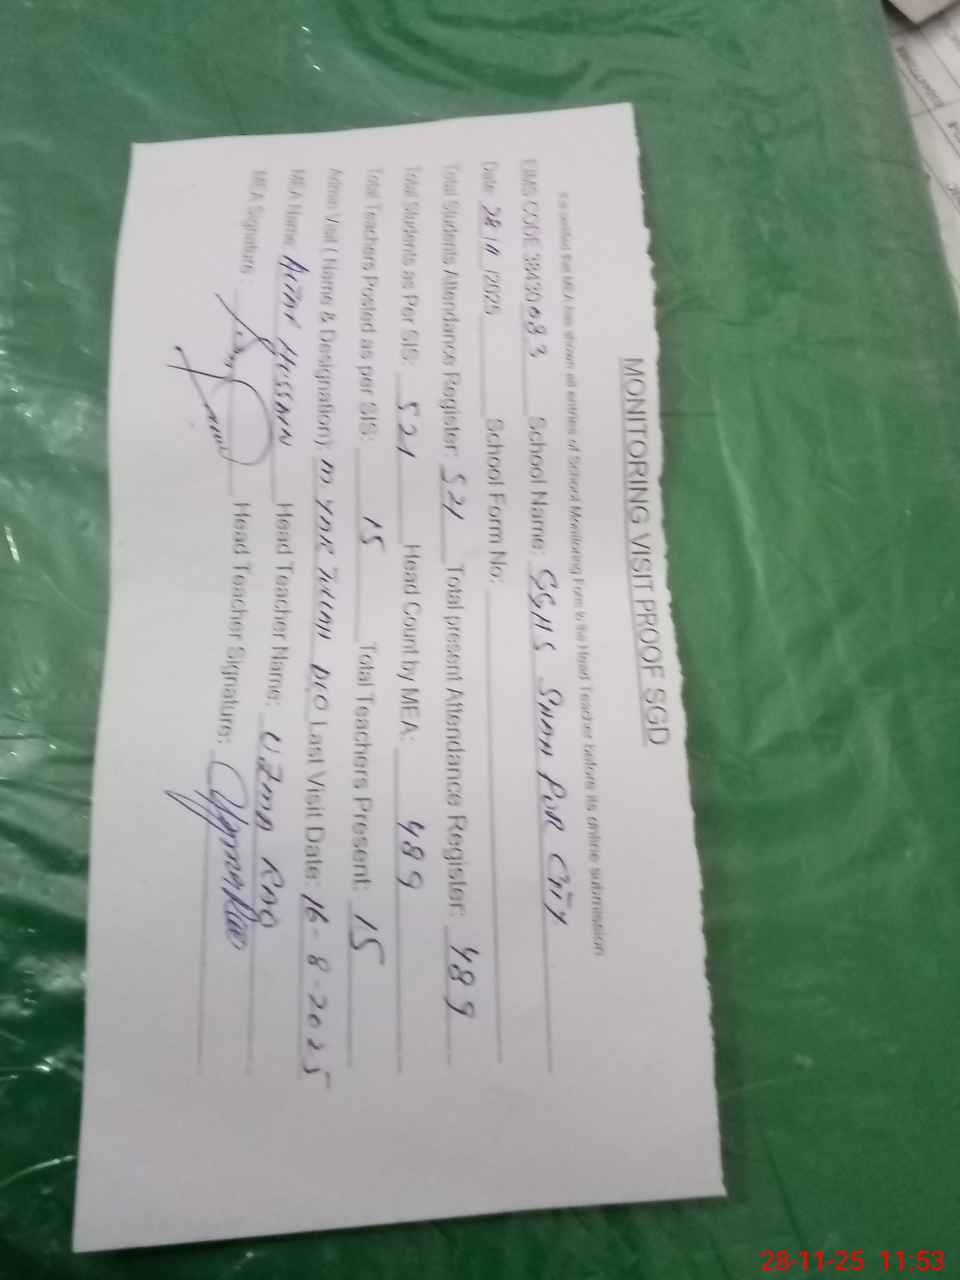 MONITORING VISIT PROOF SGD
It is certified that MEA has shown all entries of School Monitoring Form to the Head Teacher before its online submission
EIMS CODE 38430083 School Name: GGHS SHAH PUR CITY
Date 28/11/2025 School Form No:
Total Students Attendance Register: 521 Total present Attendance Register: 489
Total Students as Per SIS: 521 Head Count by MEA: 489
Total Teachers Posted as per SIS: 15 Total Teachers Present: 15
Admin Visit ( Name & Designation): M YAR Last Visit Date: 16-8-2025
MEA Name: ALTAF HUSSAIN Head Teacher Name: UZMA RAO
MEA Signature: Head Teacher Signature: Uzma Rao
28-11-25 11:53